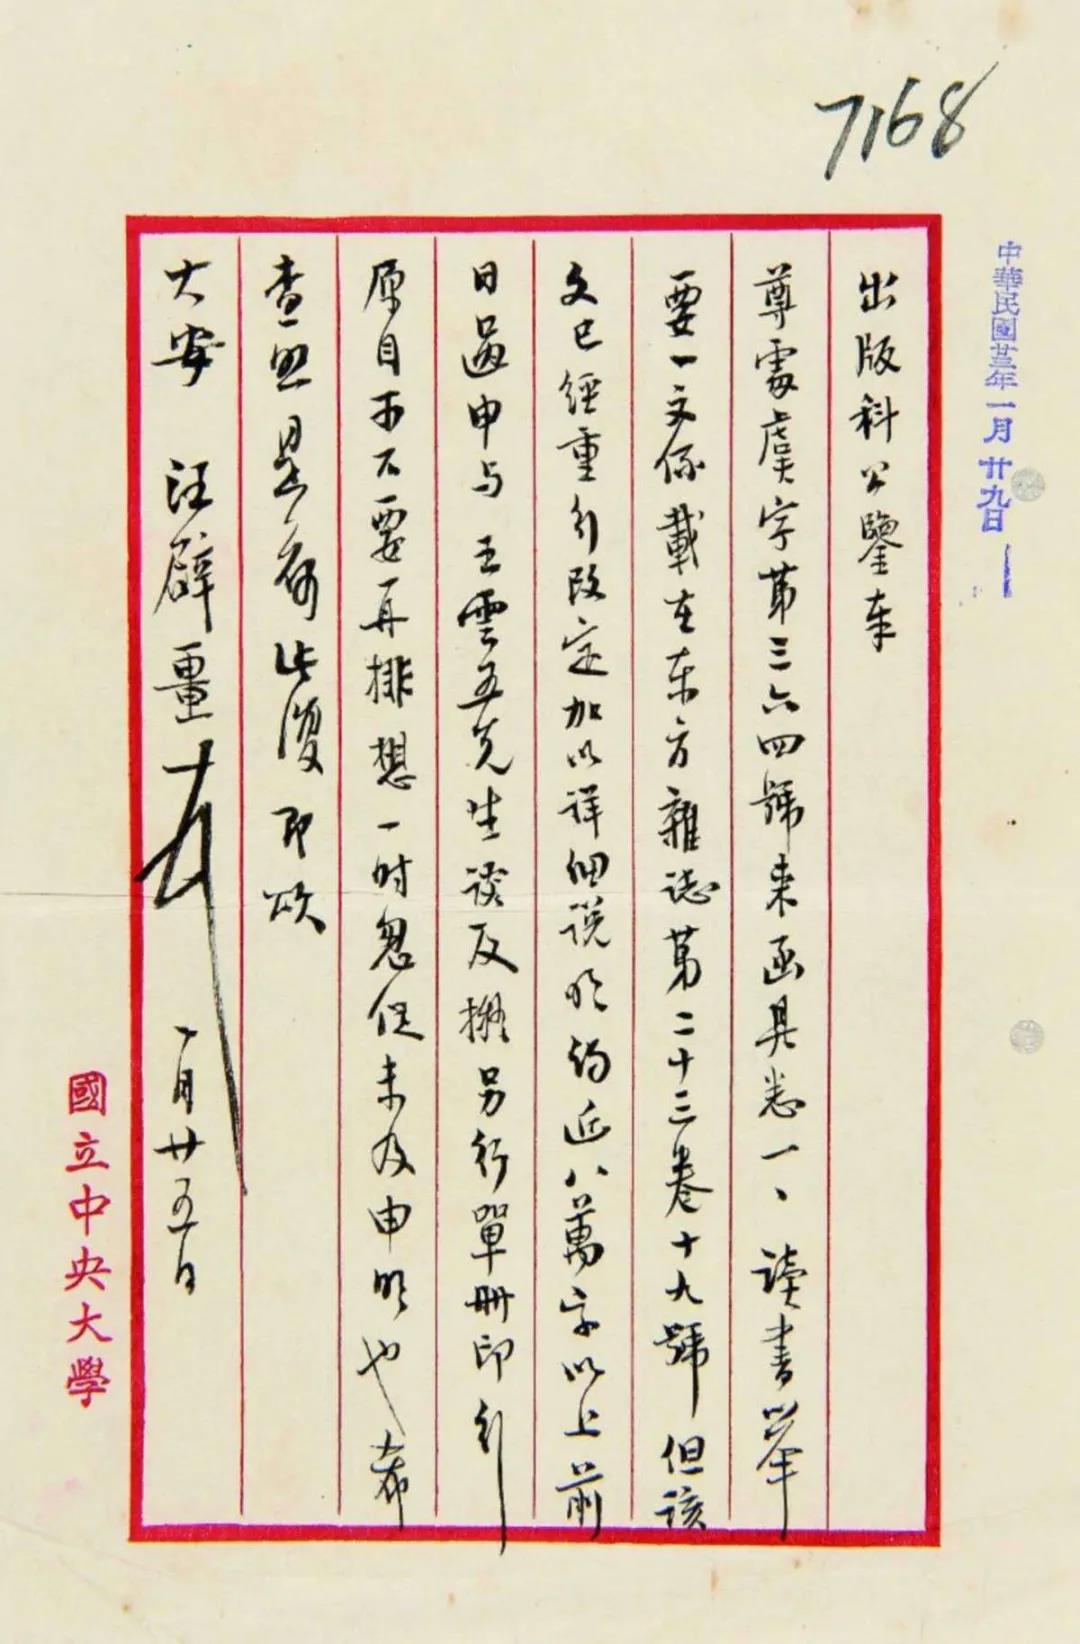 7168
中華民國廿三年一月廿九日
出版科公鑒奉
尊處虞字第三六四號來函具悉一、讀書舉
要一文係載在东方雜誌第二十三卷十九號但該
文已經重行改定加以詳細説明約近八萬字以上前
日過申与王雲五先生談及擬另行單冊印行
原目不要再排想一时忽促未及申明也希
查照是荷此復即頌
大安 汪辟畺
一月廿五日
國立中央大學